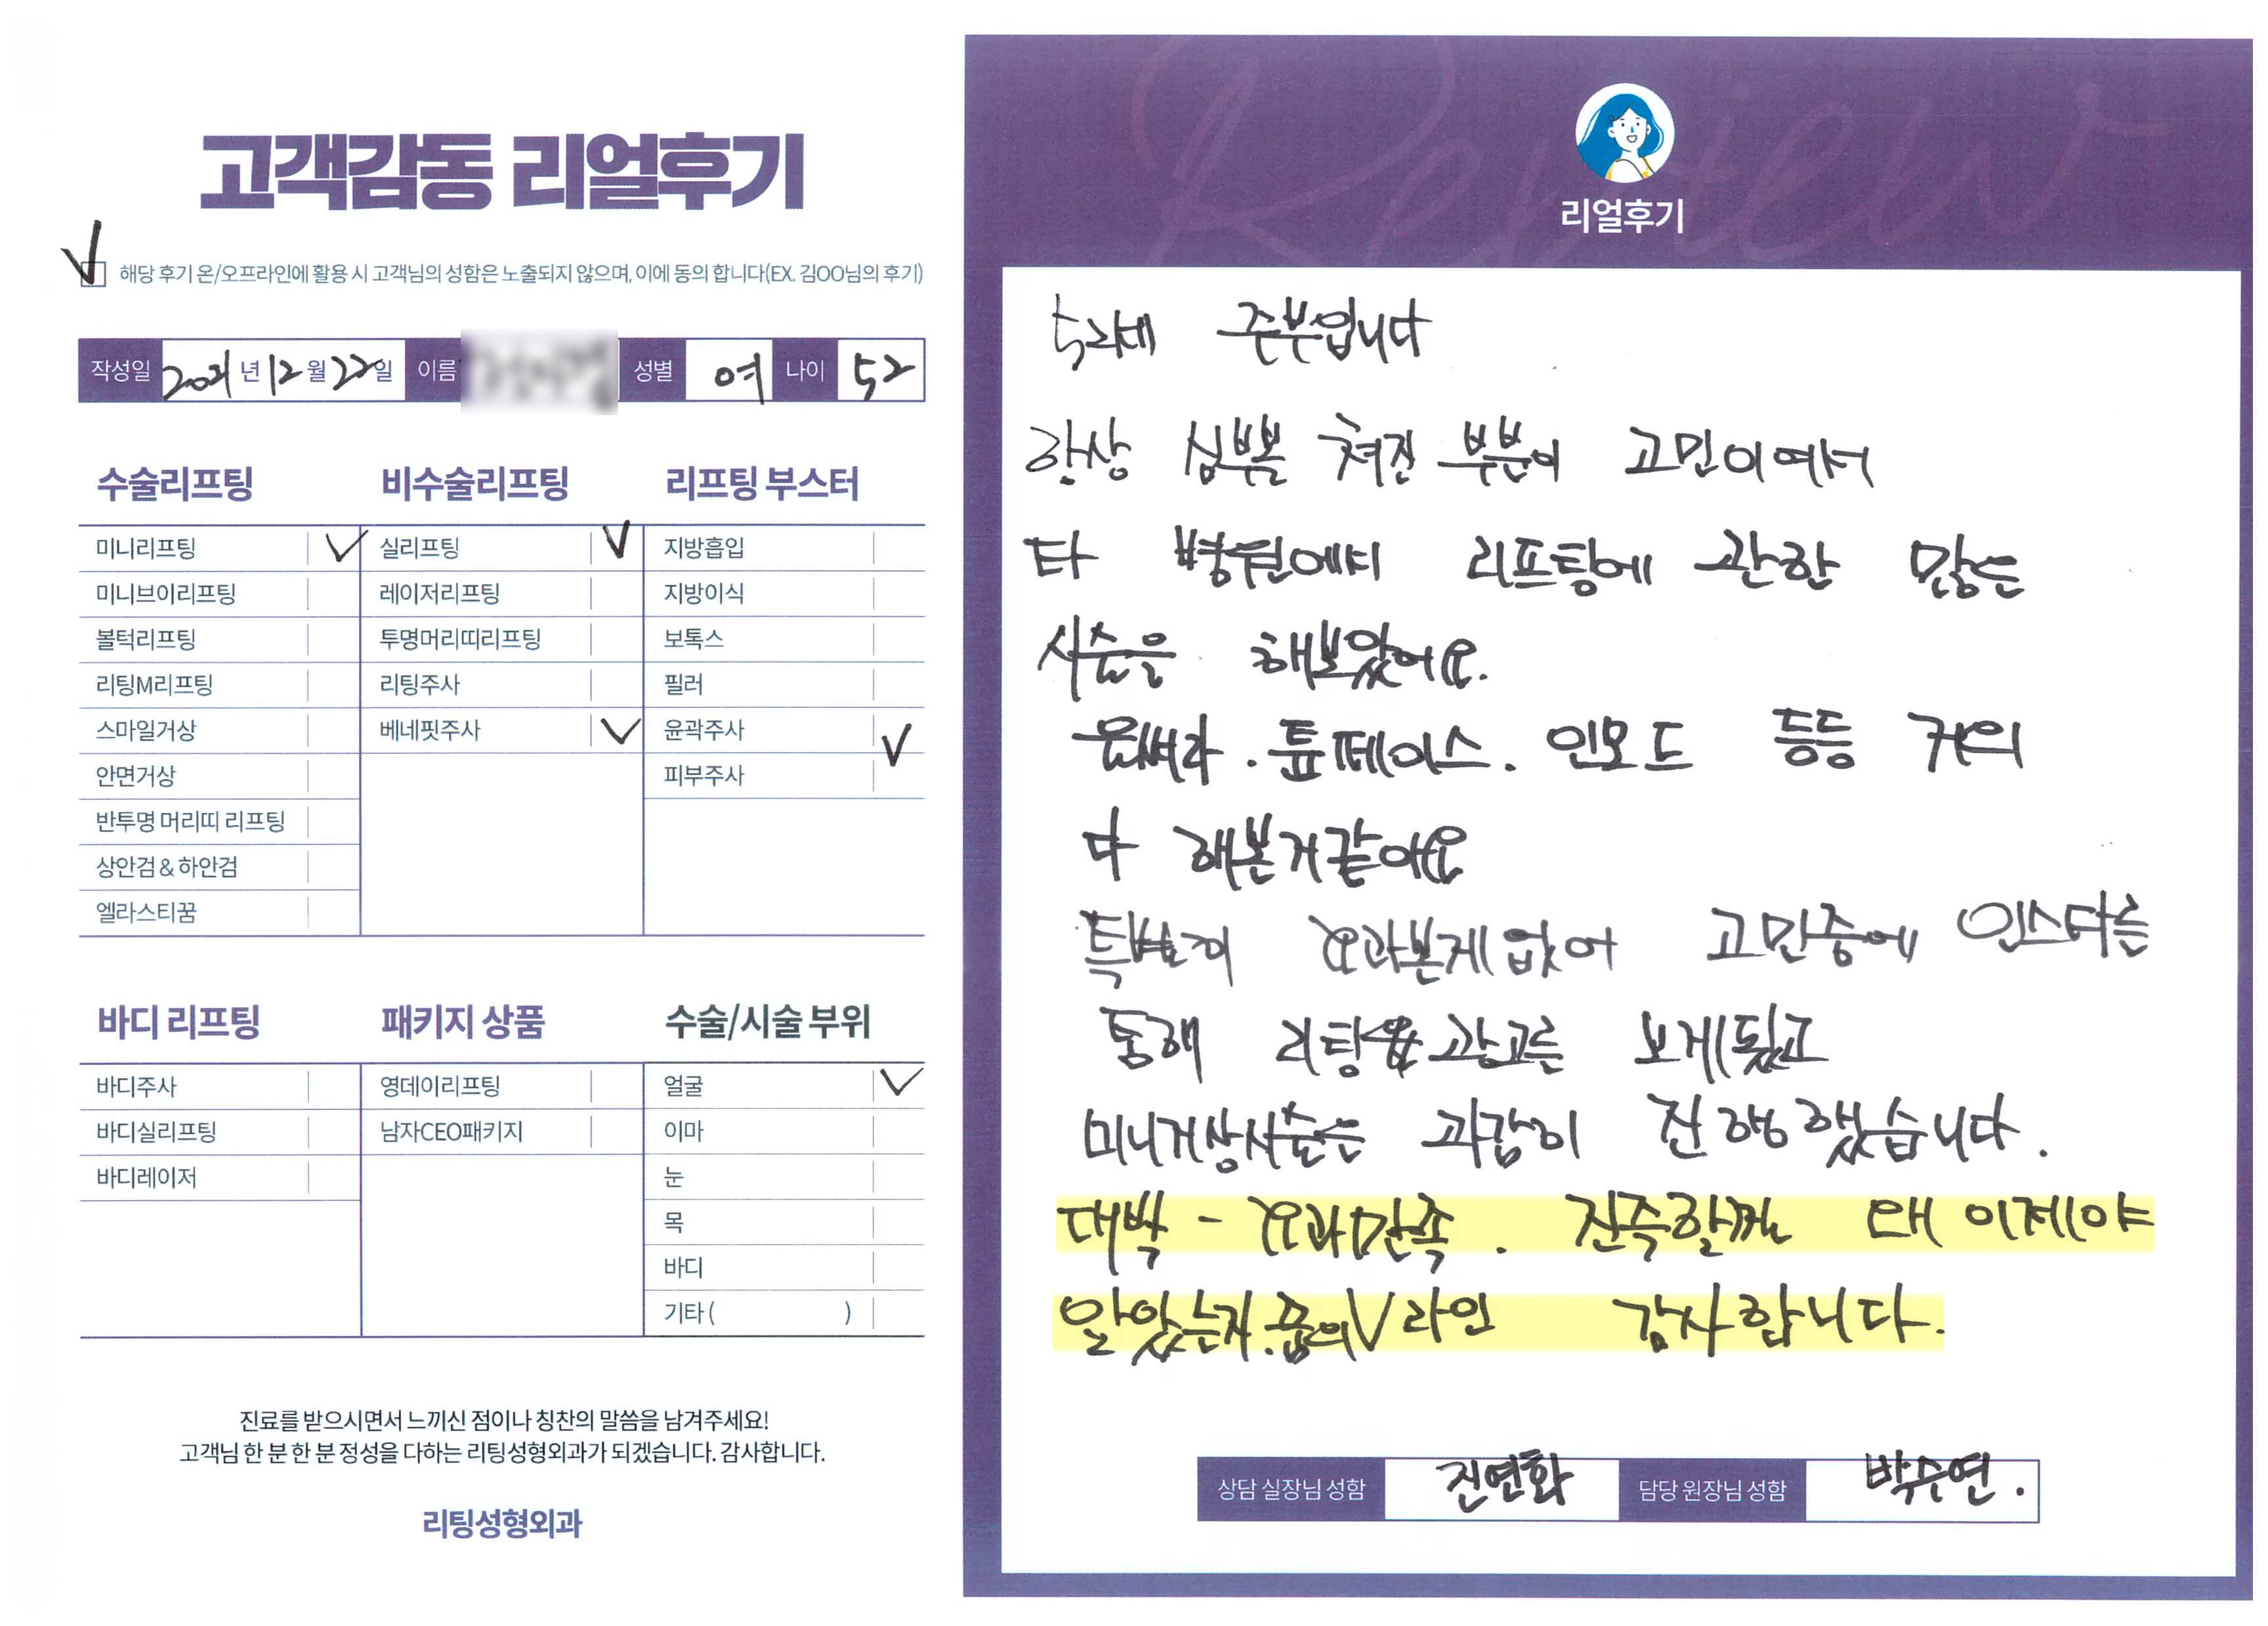 고객감동 리얼후기
해당 후기 온/오프라인에 활용 시 고객님의 성함은 노출되지 않으며, 이에 동의 합니다(EX. 김OO님의 후기)
작성일 2021년 12월 22일 이름 성별 여 나이 52
수술리프팅
미니리프팅
미니브이리프팅
볼턱리프팅
리팅M리프팅
스마일거상
안면거상
반투명 머리띠 리프팅
상안검 & 하안검
엘라스티꿈
비수술리프팅
실리프팅
레이저리프팅
투명머리띠리프팅
리팅주사
베네핏주사
리프팅 부스터
지방흡입
지방이식
보톡스
필러
윤곽주사
피부주사
바디 리프팅
바디주사
바디실리프팅
바디레이저
패키지 상품
영데이리프팅
남자CEO패키지
수술/시술 부위
얼굴
이마
눈
목
바디
기타 ( )
진료를 받으시면서 느끼신 점이나 칭찬의 말씀을 남겨주세요!
고객님 한 분 한 분 정성을 다하는 리팅성형외과가 되겠습니다. 감사합니다.
리팅성형외과
Review
리얼후기
52세 주부입니다
항상 심부볼 쳐진 부분이 고민이여서
타 병원에서 리프팅에 관한 많은
시술을 해보았어요.
울쎄라. 튠페이스. 인모드 등등 거의
다 해본거같아요
특별히 효과본게없어 고민중에 인스타를
통해 리팅 광고를 보게됬고
미니거상시술을 과감히 진행했습니다.
대박 - 효과만족. 진즉할껄 왜 이제야
알았는지. 꿈의V라인 감사합니다.
상담 실장님 성함 진연화 담당 원장님 성함 박수연.